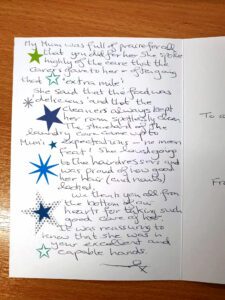 My Mum was full of praise for all
that you did for her. She spoke
highly of the care that the
Carers gave to her + of going
that 'extra mile'!
She said that the food was
delicious and that the
cleaners always kept
her room spotlessly clean.
The standard of the
laundry care came up to
Mum's expectations - no mean
feat! She loved going
to the hairdressers and
was proud of how good
her hair (and nails)
looked.
We thank you all from
the bottom of our
hearts for taking such
good care of her.
It was reassuring to
know that she was in
your excellent and
capable hands.
x
To a
Fr